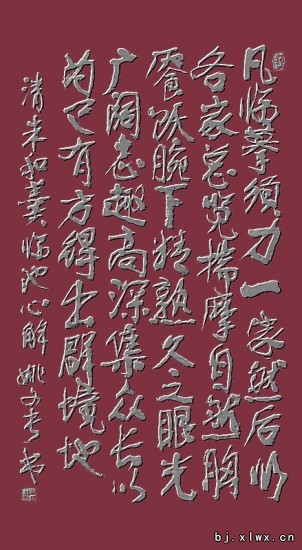 凡临摹须力一家然后以
各家总览揣摩自然胸
餍跃腕下精熟久之眼光
广阔志趣高深集众长以
为己有方得出群境地
清朱和羹临池心解姚文
bj.xlwx.cn